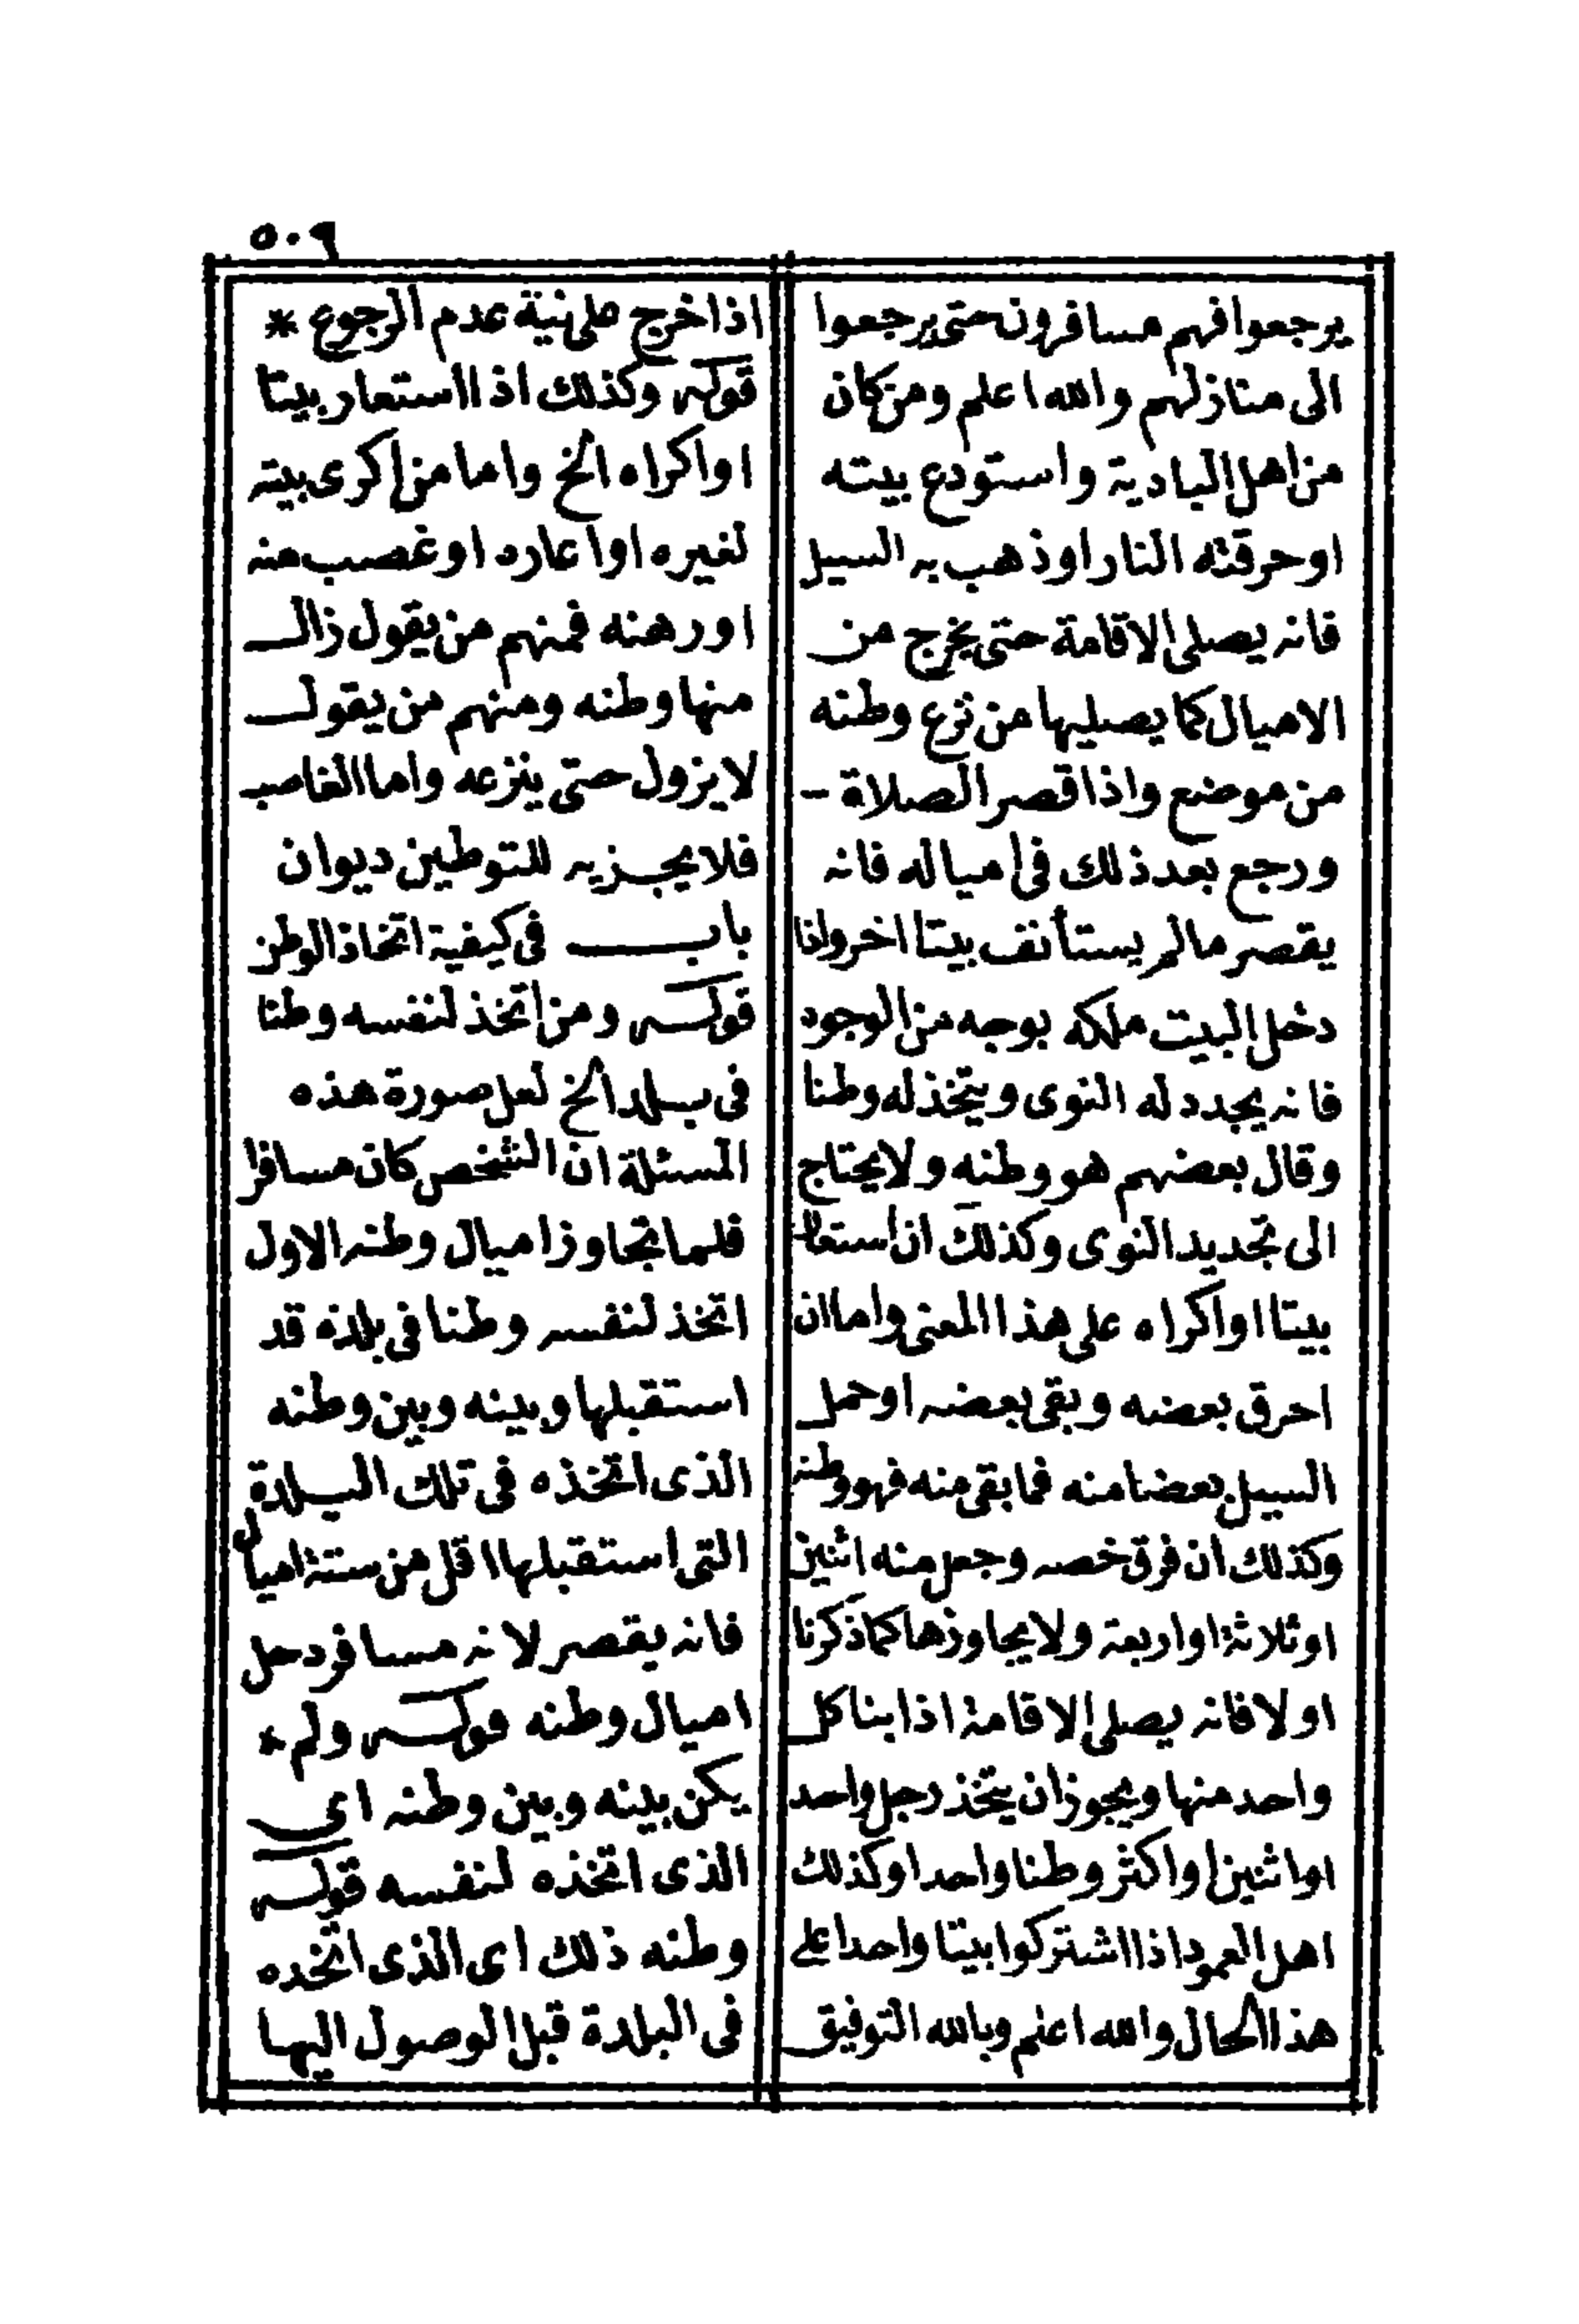 ٥٠٩
يرجعوا فهم مسافرون حتى يرجعوا
الى منازلهم والله اعلم ومن كان
من اهل البادية واستودع بيته
او حرقته النار او ذهب به السيل
فانه يصلى الاقامة حتى يخرج من
الاميال كما يصليها من نزع وطنه
من موضع واذا قصر الصلاة -
ورجع بعد ذلك فى امياله فانه
يقصر مالم يستأنف بيتا اخر واذا
دخل البيت ملكه بوجه من الوجود
فانه يجدد له النوى ويتخذ له وطنا
وقال بعضهم هو وطنه ولا يحتاج
الى تجديد النوى وكذلك ان استعار
بيتا او اكراه على هذا المعنى واما ان
احرق بعضه وبقى بعضه او حمل
السيل بعضا منه فما بقى منه فهو وطنه
وكذلك ان فرق خصه وجعل منه اثنين
او ثلاثة او اربعة ولا يجاوزها كما ذكرنا
اولا فانه يصلى الاقامة اذا بنا كل
واحد منها ويجوز ان يتخذ رجل واحد
او اثنين او اكثر وطنا واحدا وكذلك
اهل العمود اذا اشتركوا بيتا واحدا على
هذا الحال والله اعلم وبالله التوفيق
اذا خرج على نية عدم الرجوع *
قوله وكذلك اذا استعار بيتا
او اكراه الخ واما من اكرى بيته
لغيره او اعاره او غصب منه
او رهنه فمنهم من يقول زال
منها وطنه ومنهم من يقول
لا يزول حتى ينزعه واما الغاصب
فلا يجزيه للتوطين ديوان
باب فى كيفية اتخاذ الوطن
قوله ومن اتخذ لنفسه وطنا
فى بلد الخ لعل صورة هذه
المسئلة ان الشخص كان مسافرا
فلما تجاوز اميال وطنه الاول
اتخذ لنفسه وطنا فى بلدة قد
استقبلها وبينه وبين وطنه
الذى اتخذه فى تلك البلدة
التى استقبلها اقل من ستة اميال
فانه يقصر لانه مسافر دخل
اميال وطنه قوله ولم *
يكن بينه وبين وطنه اى
الذى اتخذه لنفسه قوله
وطنه ذلك اى الذى اتخده
فى البلدة قبل الوصول اليها